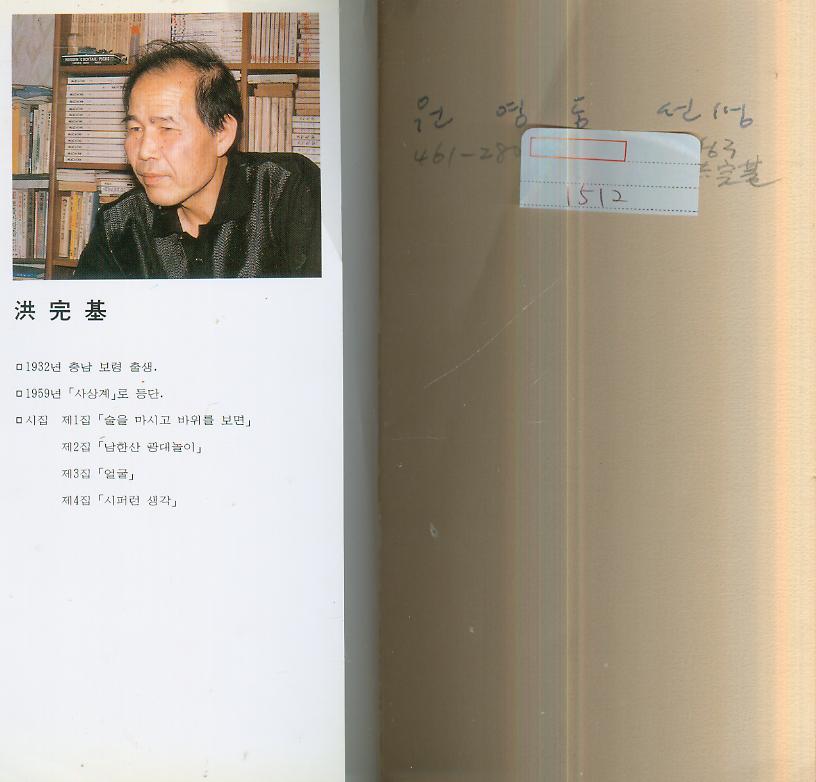 洪完基
1932년 충남 보령 출생.
1959년 「사상계」로 등단.
시집 제1집 「술을 마시고 바위를 보면」
제2집 「남한산 광대놀이」
제3집 「얼굴」
제4집 「시퍼런 생각」
원영동
461-280
完基
1512